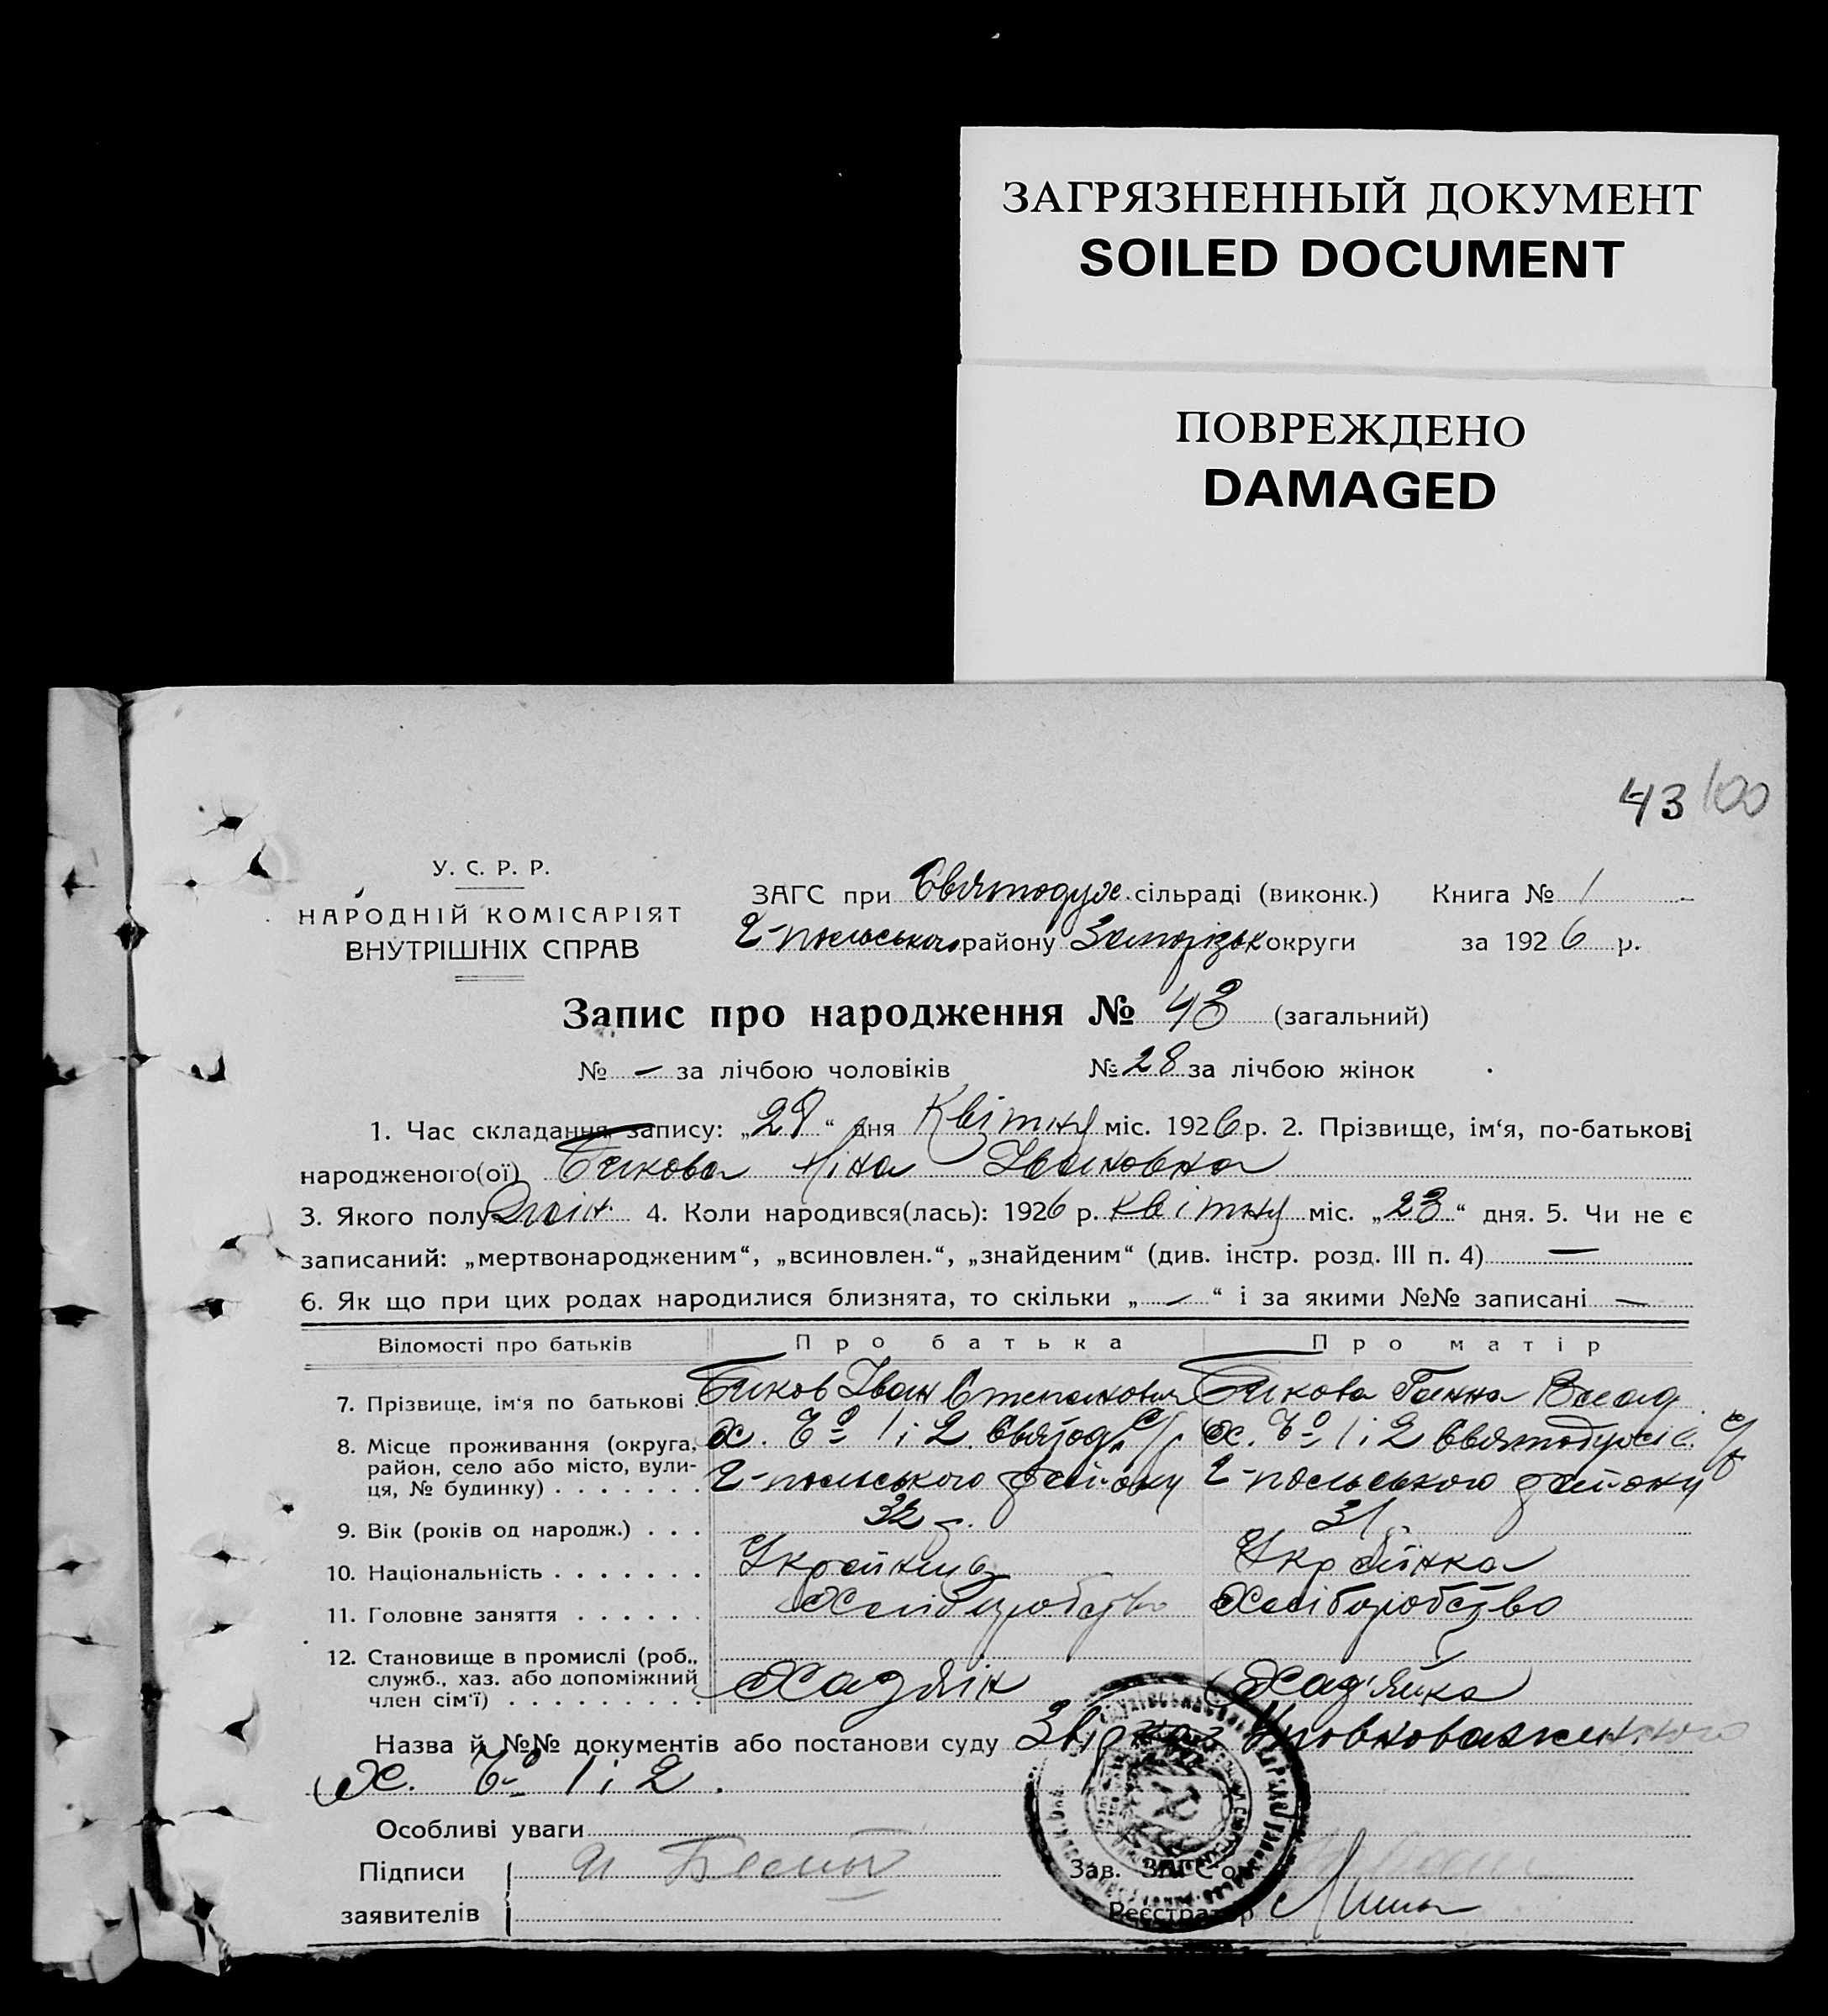 ЗАГРЯЗНЕННЫЙ ДОКУМЕНТ
SOILED DOCUMENT
ПОВРЕЖДЕНО
DAMAGED
43 100
У. С. Р. Р.
НАРОДНІЙ КОМІСАРІЯТ
ВНУТРІШНІХ СПРАВ
ЗАГС при Святодух. сільраді (виконк.) Книга № 1
2-польського району Запорізьк округи за 1926 р.
Запис про народження № 43 (загальний)
№ — за лічбою чоловіків № 28 за лічбою жінок
1. Час складання запису: „29“ дня Квітня міс. 1926 р. 2. Прізвище, ім‘я, по-батькові
народженого(ої) Бикова Ніна Івановна
3. Якого полу жін. 4. Коли народився(лась): 1926 р. квітня міс. „23“ дня. 5. Чи не є
записаний: „мертвонародженим“, „всиновлен.“, „знайденим“ (див. інстр. розд. III п. 4) —
6. Як що при цих родах народилися близнята, то скільки „—“ і за якими №№ записані —
Відомості про батьків Про батька Про матір
7. Прізвище, ім‘я по батькові Биков Іван Степанович Бикова Ганна Влад
8. Місце проживання (округа, район, село або місто, вулиця, № будинку) х. 1 і 2 с/р х. 1 і 2 с/р
2-польського району 2-польського району
9. Вік (років од народж.) 32 р. 31 р.
10. Національність Українець Українка
11. Головне заняття Хліборобство Хліборобство
12. Становище в промислі (роб., служб., хаз. або допоміжний член сім‘ї) Хазяїн Хазяйка
Назва й №№ документів або постанови суду Уповноваженного
х. 1 і 2.
Особливі уваги
Підписи
заявителів
Зав. ЗАГС‘ом
Реєстратор